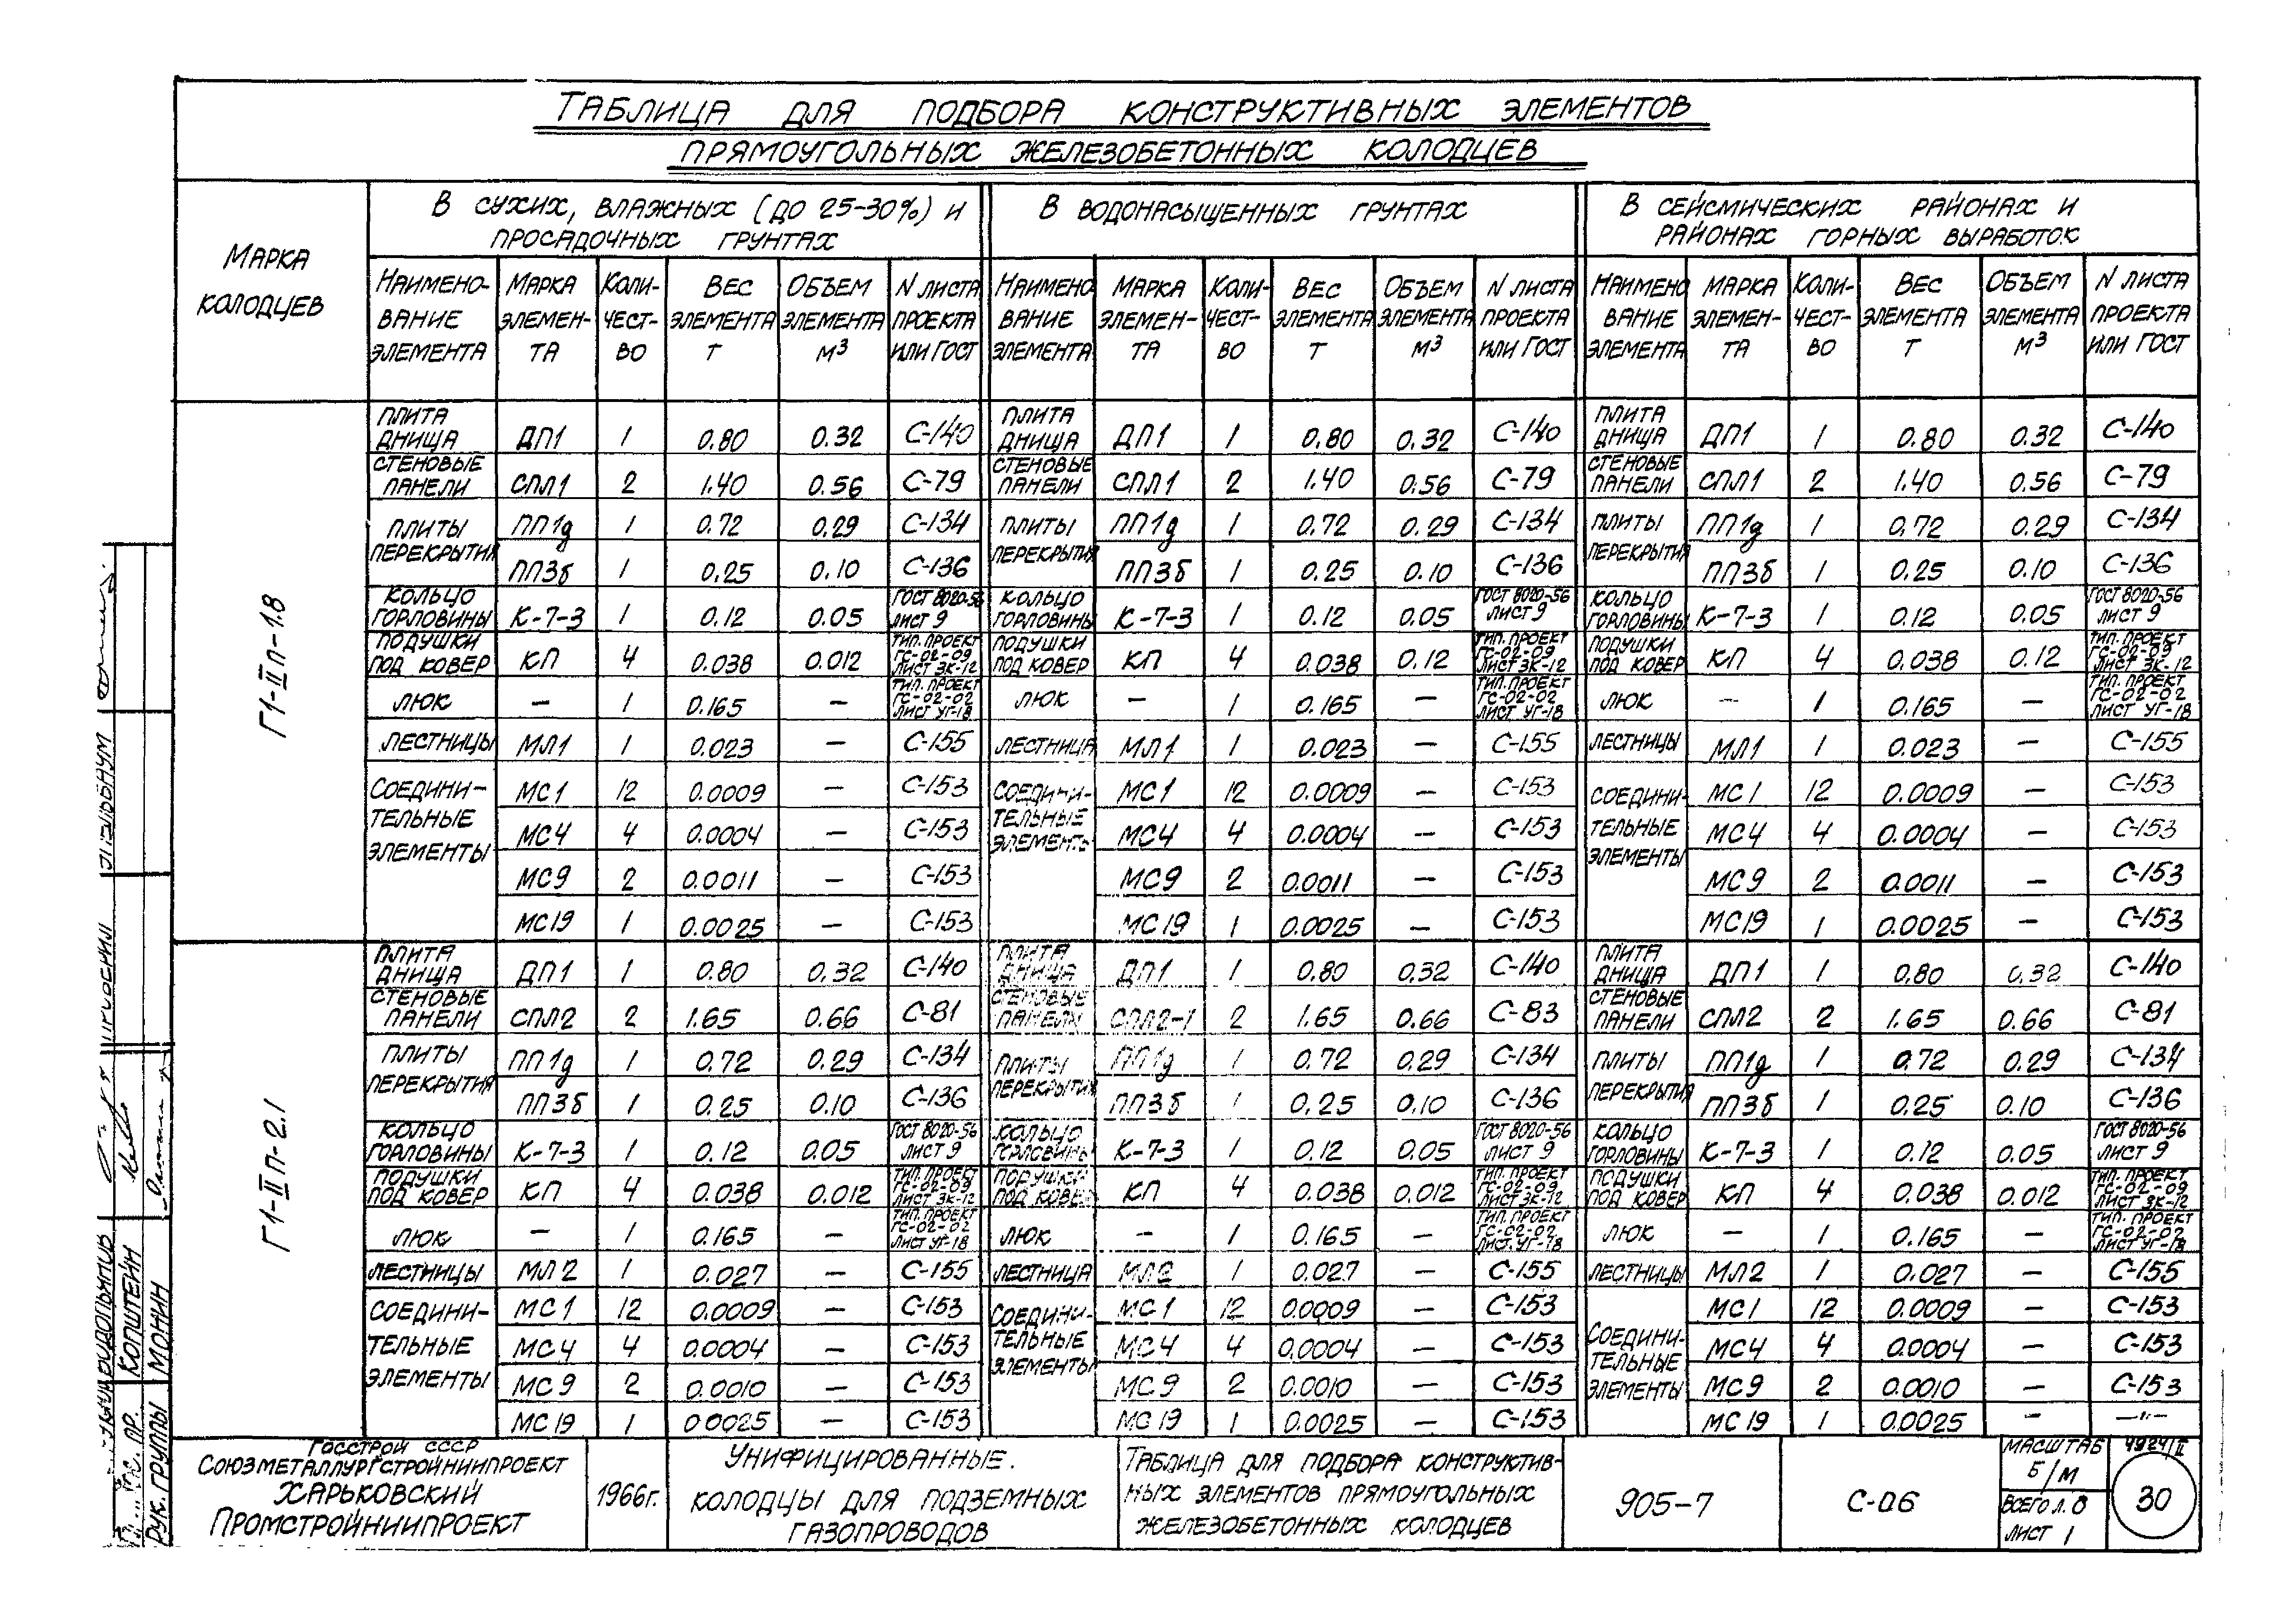 ТАБЛИЦА ДЛЯ ПОДБОРА КОНСТРУКТИВНЫХ ЭЛЕМЕНТОВ
ПРЯМОУГОЛЬНЫХ ЖЕЛЕЗОБЕТОННЫХ КОЛОДЦЕВ
МАРКА КОЛОДЦЕВ
В СУХИХ, ВЛАЖНЫХ (ДО 25-30%) И
ПРОСАДОЧНЫХ ГРУНТАХ
В ВОДОНАСЫЩЕННЫХ ГРУНТАХ
В СЕЙСМИЧЕСКИХ РАЙОНАХ И
РАЙОНАХ ГОРНЫХ ВЫРАБОТОК
НАИМЕНО- МАРКА КОЛИ- ВЕС ОБЪЕМ N ЛИСТА НАИМЕНО МАРКА КОЛИ- ВЕС ОБЪЕМ N ЛИСТА НАИМЕНО МАРКА КОЛИ- ВЕС ОБЪЕМ N ЛИСТА
ВАНИЕ ЭЛЕМЕН- ЧЕСТ- ЭЛЕМЕНТА ЭЛЕМЕНТА ПРОЕКТА ВАНИЕ ЭЛЕМЕН- ЧЕСТ- ЭЛЕМЕНТА ЭЛЕМЕНТА ПРОЕКТА ВАНИЕ ЭЛЕМЕН- ЧЕСТ- ЭЛЕМЕНТА ЭЛЕМЕНТА ПРОЕКТА
ЭЛЕМЕНТА ТА ВО Т М3 ИЛИ ГОСТ ЭЛЕМЕНТА ТА ВО Т М3 ИЛИ ГОСТ ЭЛЕМЕНТА ТА ВО Т М3 ИЛИ ГОСТ
Г1-IIп-1.8
ПЛИТА ДНИЩА ДП1 1 0.80 0.32 С-140 ПЛИТА ДНИЩА ДП1 1 0.80 0.32 С-140 ПЛИТА ДНИЩА ДП1 1 0.80 0.32 С-140
СТЕНОВЫЕ ПАНЕЛИ СПЛ1 2 1.40 0.56 С-79 СТЕНОВЫЕ ПАНЕЛИ СПЛ1 2 1.40 0.56 С-79 СТЕНОВЫЕ ПАНЕЛИ СПЛ1 2 1.40 0.56 С-79
ПЛИТЫ ПЕРЕКРЫТИЯ ПП1д 1 0.72 0.29 С-134 ПЛИТЫ ПЕРЕКРЫТИЯ ПП1д 1 0.72 0.29 С-134 ПЛИТЫ ПЕРЕКРЫТИЯ ПП1д 1 0.72 0.29 С-134
ПП3б 1 0.25 0.10 С-136 ПП3б 1 0.25 0.10 С-136 ПП3б 1 0.25 0.10 С-136
КОЛЬЦО ГОРЛОВИНЫ К-7-3 1 0.12 0.05 ГОСТ 8020-56 ЛИСТ 9 КОЛЬЦО ГОРЛОВИНЫ К-7-3 1 0.12 0.05 ГОСТ 8020-56 ЛИСТ 9 КОЛЬЦО ГОРЛОВИНЫ К-7-3 1 0.12 0.05 ГОСТ 8020-56 ЛИСТ 9
ПОДУШКИ ПОД КОВЕР КП 4 0.038 0.012 ТИП. ПРОЕКТ ГС-02-09 ЛИСТ ЗК-12 ПОДУШКИ ПОД КОВЕР КП 4 0.038 0.12 ТИП. ПРОЕКТ ГС-02-09 ЛИСТ ЗК-12 ПОДУШКИ ПОД КОВЕР КП 4 0.038 0.12 ТИП. ПРОЕКТ ГС-02-09 ЛИСТ ЗК-12
ЛЮК — 1 0.165 — ТИП. ПРОЕКТ ГС-02-02 ЛИСТ УГ-18 ЛЮК — 1 0.165 — ТИП. ПРОЕКТ ГС-02-02 ЛИСТ УГ-18 ЛЮК — 1 0.165 — ТИП. ПРОЕКТ ГС-02-02 ЛИСТ УГ-18
ЛЕСТНИЦЫ МЛ1 1 0.023 — С-155 ЛЕСТНИЦА МЛ1 1 0.023 — С-155 ЛЕСТНИЦЫ МЛ1 1 0.023 — С-155
СОЕДИНИ- ТЕЛЬНЫЕ ЭЛЕМЕНТЫ МС1 12 0.0009 — С-153 СОЕДИНИ- ТЕЛЬНЫЕ ЭЛЕМЕНТЫ МС1 12 0.0009 — С-153 СОЕДИНИ- ТЕЛЬНЫЕ ЭЛЕМЕНТЫ МС1 12 0.0009 — С-153
МС4 4 0.0004 — С-153 МС4 4 0.0004 — С-153 МС4 4 0.0004 — С-153
МС9 2 0.0011 — С-153 МС9 2 0.0011 — С-153 МС9 2 0.0011 — С-153
МС19 1 0.0025 — С-153 МС19 1 0.0025 — С-153 МС19 1 0.0025 — С-153
Г1-IIп-2.1
ПЛИТА ДНИЩА ДП1 1 0.80 0.32 С-140 ПЛИТА ДНИЩА ДП1 1 0.80 0.32 С-140 ПЛИТА ДНИЩА ДП1 1 0.80 0.32 С-140
СТЕНОВЫЕ ПАНЕЛИ СПЛ2 2 1.65 0.66 С-81 СТЕНОВЫЕ ПАНЕЛИ СПЛ2-1 2 1.65 0.66 С-83 СТЕНОВЫЕ ПАНЕЛИ СПЛ2 2 1.65 0.66 С-81
ПЛИТЫ ПЕРЕКРЫТИЯ ПП1д 1 0.72 0.29 С-134 ПЛИТЫ ПЕРЕКРЫТИЯ ПП1д 1 0.72 0.29 С-134 ПЛИТЫ ПЕРЕКРЫТИЯ ПП1д 1 0.72 0.29 С-134
ПП3б 1 0.25 0.10 С-136 ПП3б 1 0.25 0.10 С-136 ПП3б 1 0.25 0.10 С-136
КОЛЬЦО ГОРЛОВИНЫ К-7-3 1 0.12 0.05 ГОСТ 8020-56 ЛИСТ 9 КОЛЬЦО ГОРЛОВИНЫ К-7-3 1 0.12 0.05 ГОСТ 8020-56 ЛИСТ 9 КОЛЬЦО ГОРЛОВИНЫ К-7-3 1 0.12 0.05 ГОСТ 8020-56 ЛИСТ 9
ПОДУШКИ ПОД КОВЕР КП 4 0.038 0.012 ТИП. ПРОЕКТ ГС-02-09 ЛИСТ ЗК-12 ПОДУШКИ ПОД КОВЕР КП 4 0.038 0.012 ТИП. ПРОЕКТ ГС-02-09 ЛИСТ ЗК-12 ПОДУШКИ ПОД КОВЕР КП 4 0.038 0.012 ТИП. ПРОЕКТ ГС-02-09 ЛИСТ ЗК-12
ЛЮК — 1 0.165 — ТИП. ПРОЕКТ ГС-02-02 ЛИСТ УГ-18 ЛЮК — 1 0.165 — ТИП. ПРОЕКТ ГС-02-02 ЛИСТ УГ-18 ЛЮК — 1 0.165 — ТИП. ПРОЕКТ ГС-02-02 ЛИСТ УГ-18
ЛЕСТНИЦЫ МЛ2 1 0.027 — С-155 ЛЕСТНИЦА МЛ2 1 0.027 — С-155 ЛЕСТНИЦЫ МЛ2 1 0.027 — С-155
СОЕДИНИ- ТЕЛЬНЫЕ ЭЛЕМЕНТЫ МС1 12 0.0009 — С-153 СОЕДИНИ- ТЕЛЬНЫЕ ЭЛЕМЕНТЫ МС1 12 0.0009 — С-153 СОЕДИНИ- ТЕЛЬНЫЕ ЭЛЕМЕНТЫ МС1 12 0.0009 — С-153
МС4 4 0.0004 — С-153 МС4 4 0.0004 — С-153 МС4 4 0.0004 — С-153
МС9 2 0.0010 — С-153 МС9 2 0.0010 — С-153 МС9 2 0.0010 — С-153
МС19 1 0.0025 — С-153 МС19 1 0.0025 — С-153 МС19 1 0.0025 — —"—
ГОССТРОЙ СССР
СОЮЗМЕТАЛЛУРГСТРОЙНИИПРОЕКТ
ХАРЬКОВСКИЙ
ПРОМСТРОЙНИИПРОЕКТ
1966г.
УНИФИЦИРОВАННЫЕ.
КОЛОДЦЫ ДЛЯ ПОДЗЕМНЫХ
ГАЗОПРОВОДОВ
ТАБЛИЦА ДЛЯ ПОДБОРА КОНСТРУКТИВ-
НЫХ ЭЛЕМЕНТОВ ПРЯМОУГОЛЬНЫХ
ЖЕЛЕЗОБЕТОННЫХ КОЛОДЦЕВ
905-7
С-06
МАСШТАБ
Б/М
ВСЕГО Л. 8
ЛИСТ 1
4924/II
30
РУК. ГРУППЫ МОНИН
КОПШТЕЙН